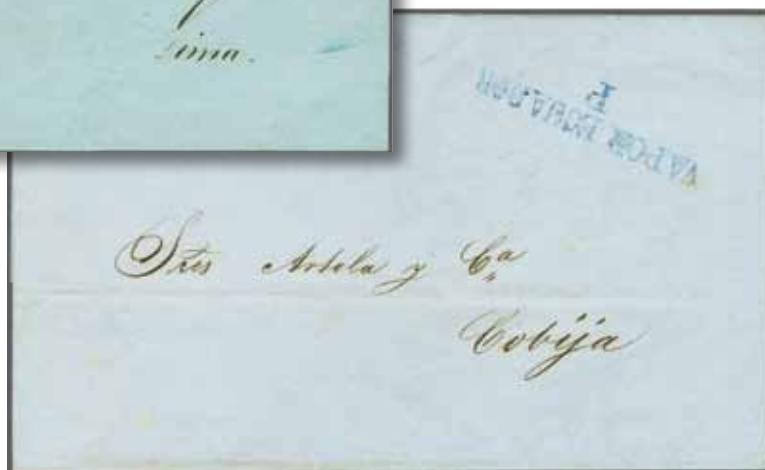 ima.
VAPOR ECUADOR
Sres Artola y Ca
Cobija